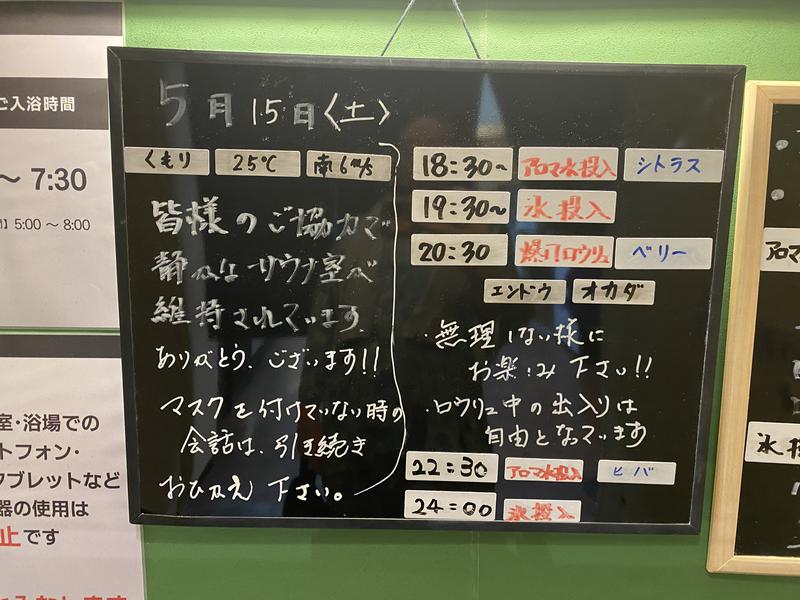 ご入浴時間
～ 7:30
5:00 ～ 8:00
室・浴場での
トフォン・
タブレットなど
器の使用は
止です
5月15日〈土〉
くもり 25℃ 南6m/s
皆様のご協力で
静かなサウナ室が
維持されています。
ありがとうございます!!
マスクを付けていない時の
会話は、引き続き
おひかえ下さい。
18:30~ アロマ水投入 シトラス
19:30~ 氷投入
20:30 爆アロウリュ ベリー
エンドウ オカダ
・無理しない様に
お楽しみ下さい!!
・ロウリュ中の出入りは
自由となっています
22:30 アロマ水投入 ヒバ
24:00 氷投入
アロマ
氷投